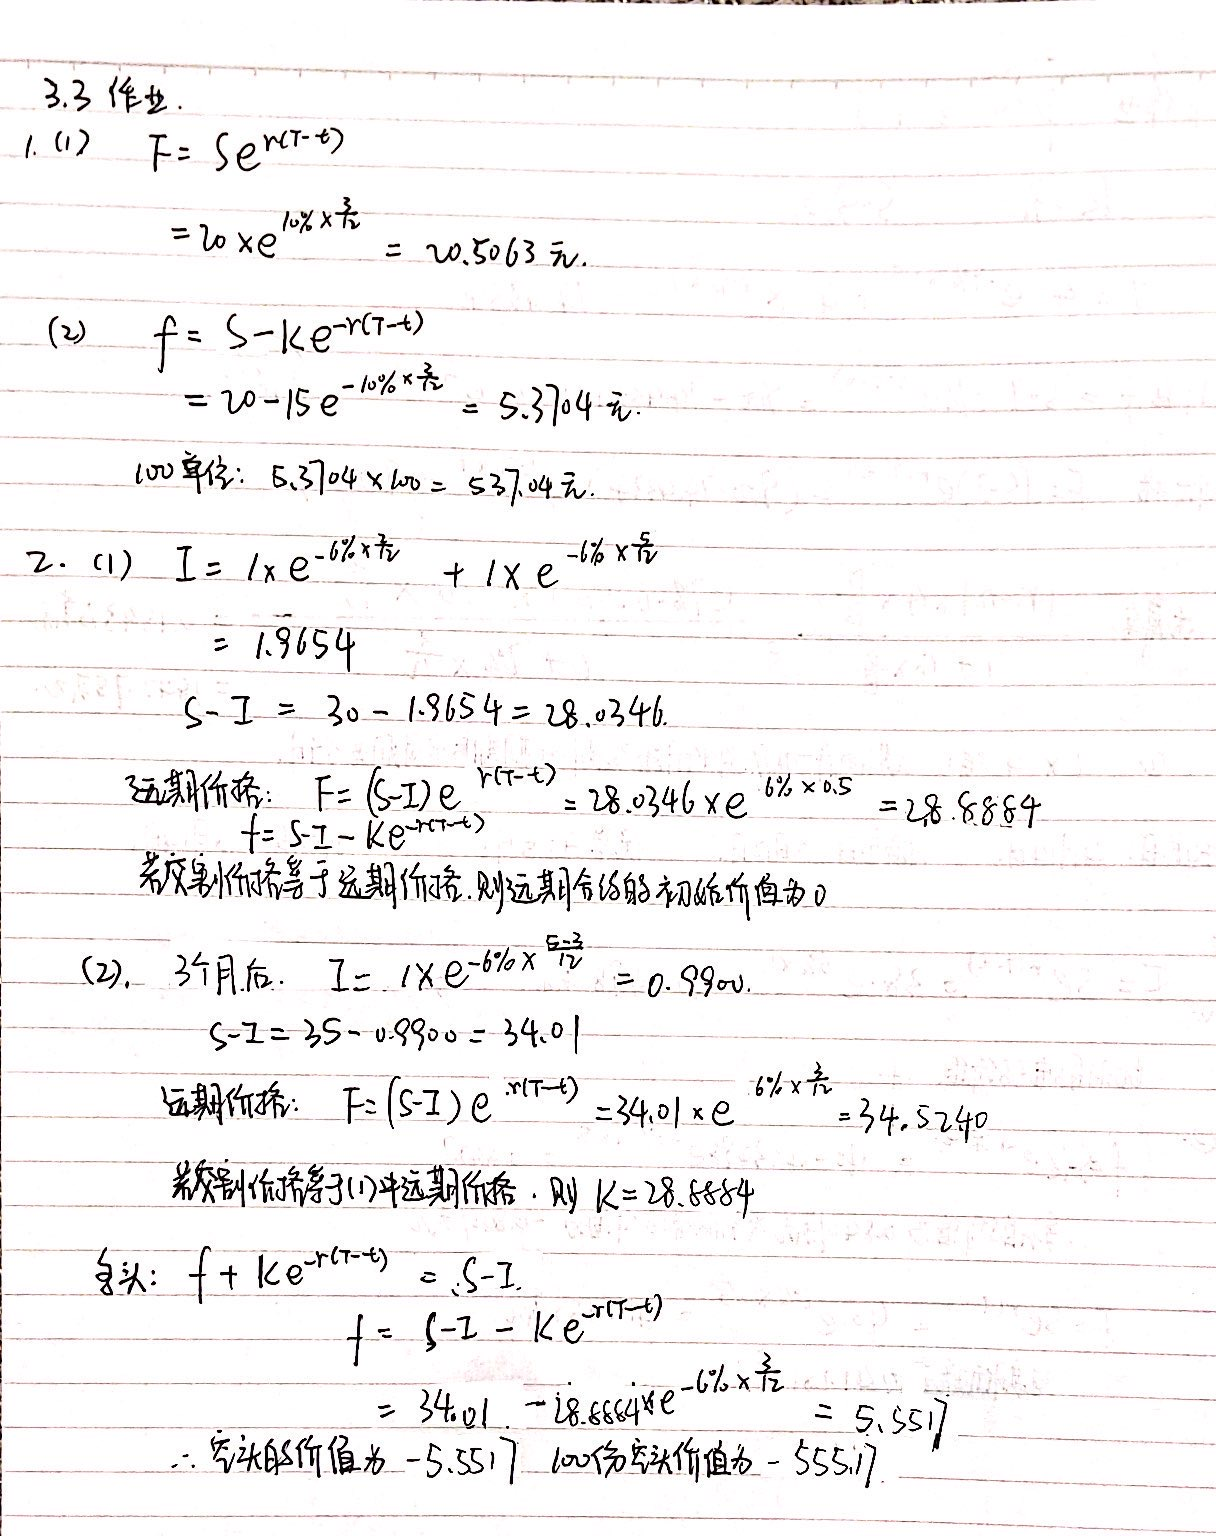 3.3 作业.
1. (1) F = Se^{r(T-t)}
= 20 × e^{10% × 3/12} = 20.5063 元.
(2) f = S - Ke^{-r(T-t)}
= 20 - 15e^{-10% × 3/12} = 5.3704 元.
100 单位: 5.3704 × 100 = 537.04 元.
2. (1) I = 1 × e^{-6% × 2/12} + 1 × e^{-6% × 5/12}
= 1.9654
S - I = 30 - 1.9654 = 28.0346.
远期价格: F = (S-I) e^{r(T-t)} = 28.0346 × e^{6% × 0.5} = 28.8884
f = S-I - Ke^{-r(T-t)}
若交割价格等于远期价格.则远期合约的初始价值为0
(2). 3个月后. I = 1 × e^{-6% × 5-3/12} = 0.9900.
S-I = 35 - 0.9900 = 34.01
远期价格: F = (S-I) e^{r(T-t)} = 34.01 × e^{6% × 3/12} = 34.5240
若交割价格等于(1)中远期价格. 则 K = 28.8884
多头: f + Ke^{-r(T-t)} = S-I.
f = S-I - Ke^{-r(T-t)}
= 34.01 - 28.8884 × e^{-6% × 3/12} = 5.5517
∴ 空头的价值为 -5.5517 100份空头价值为 -555.17.